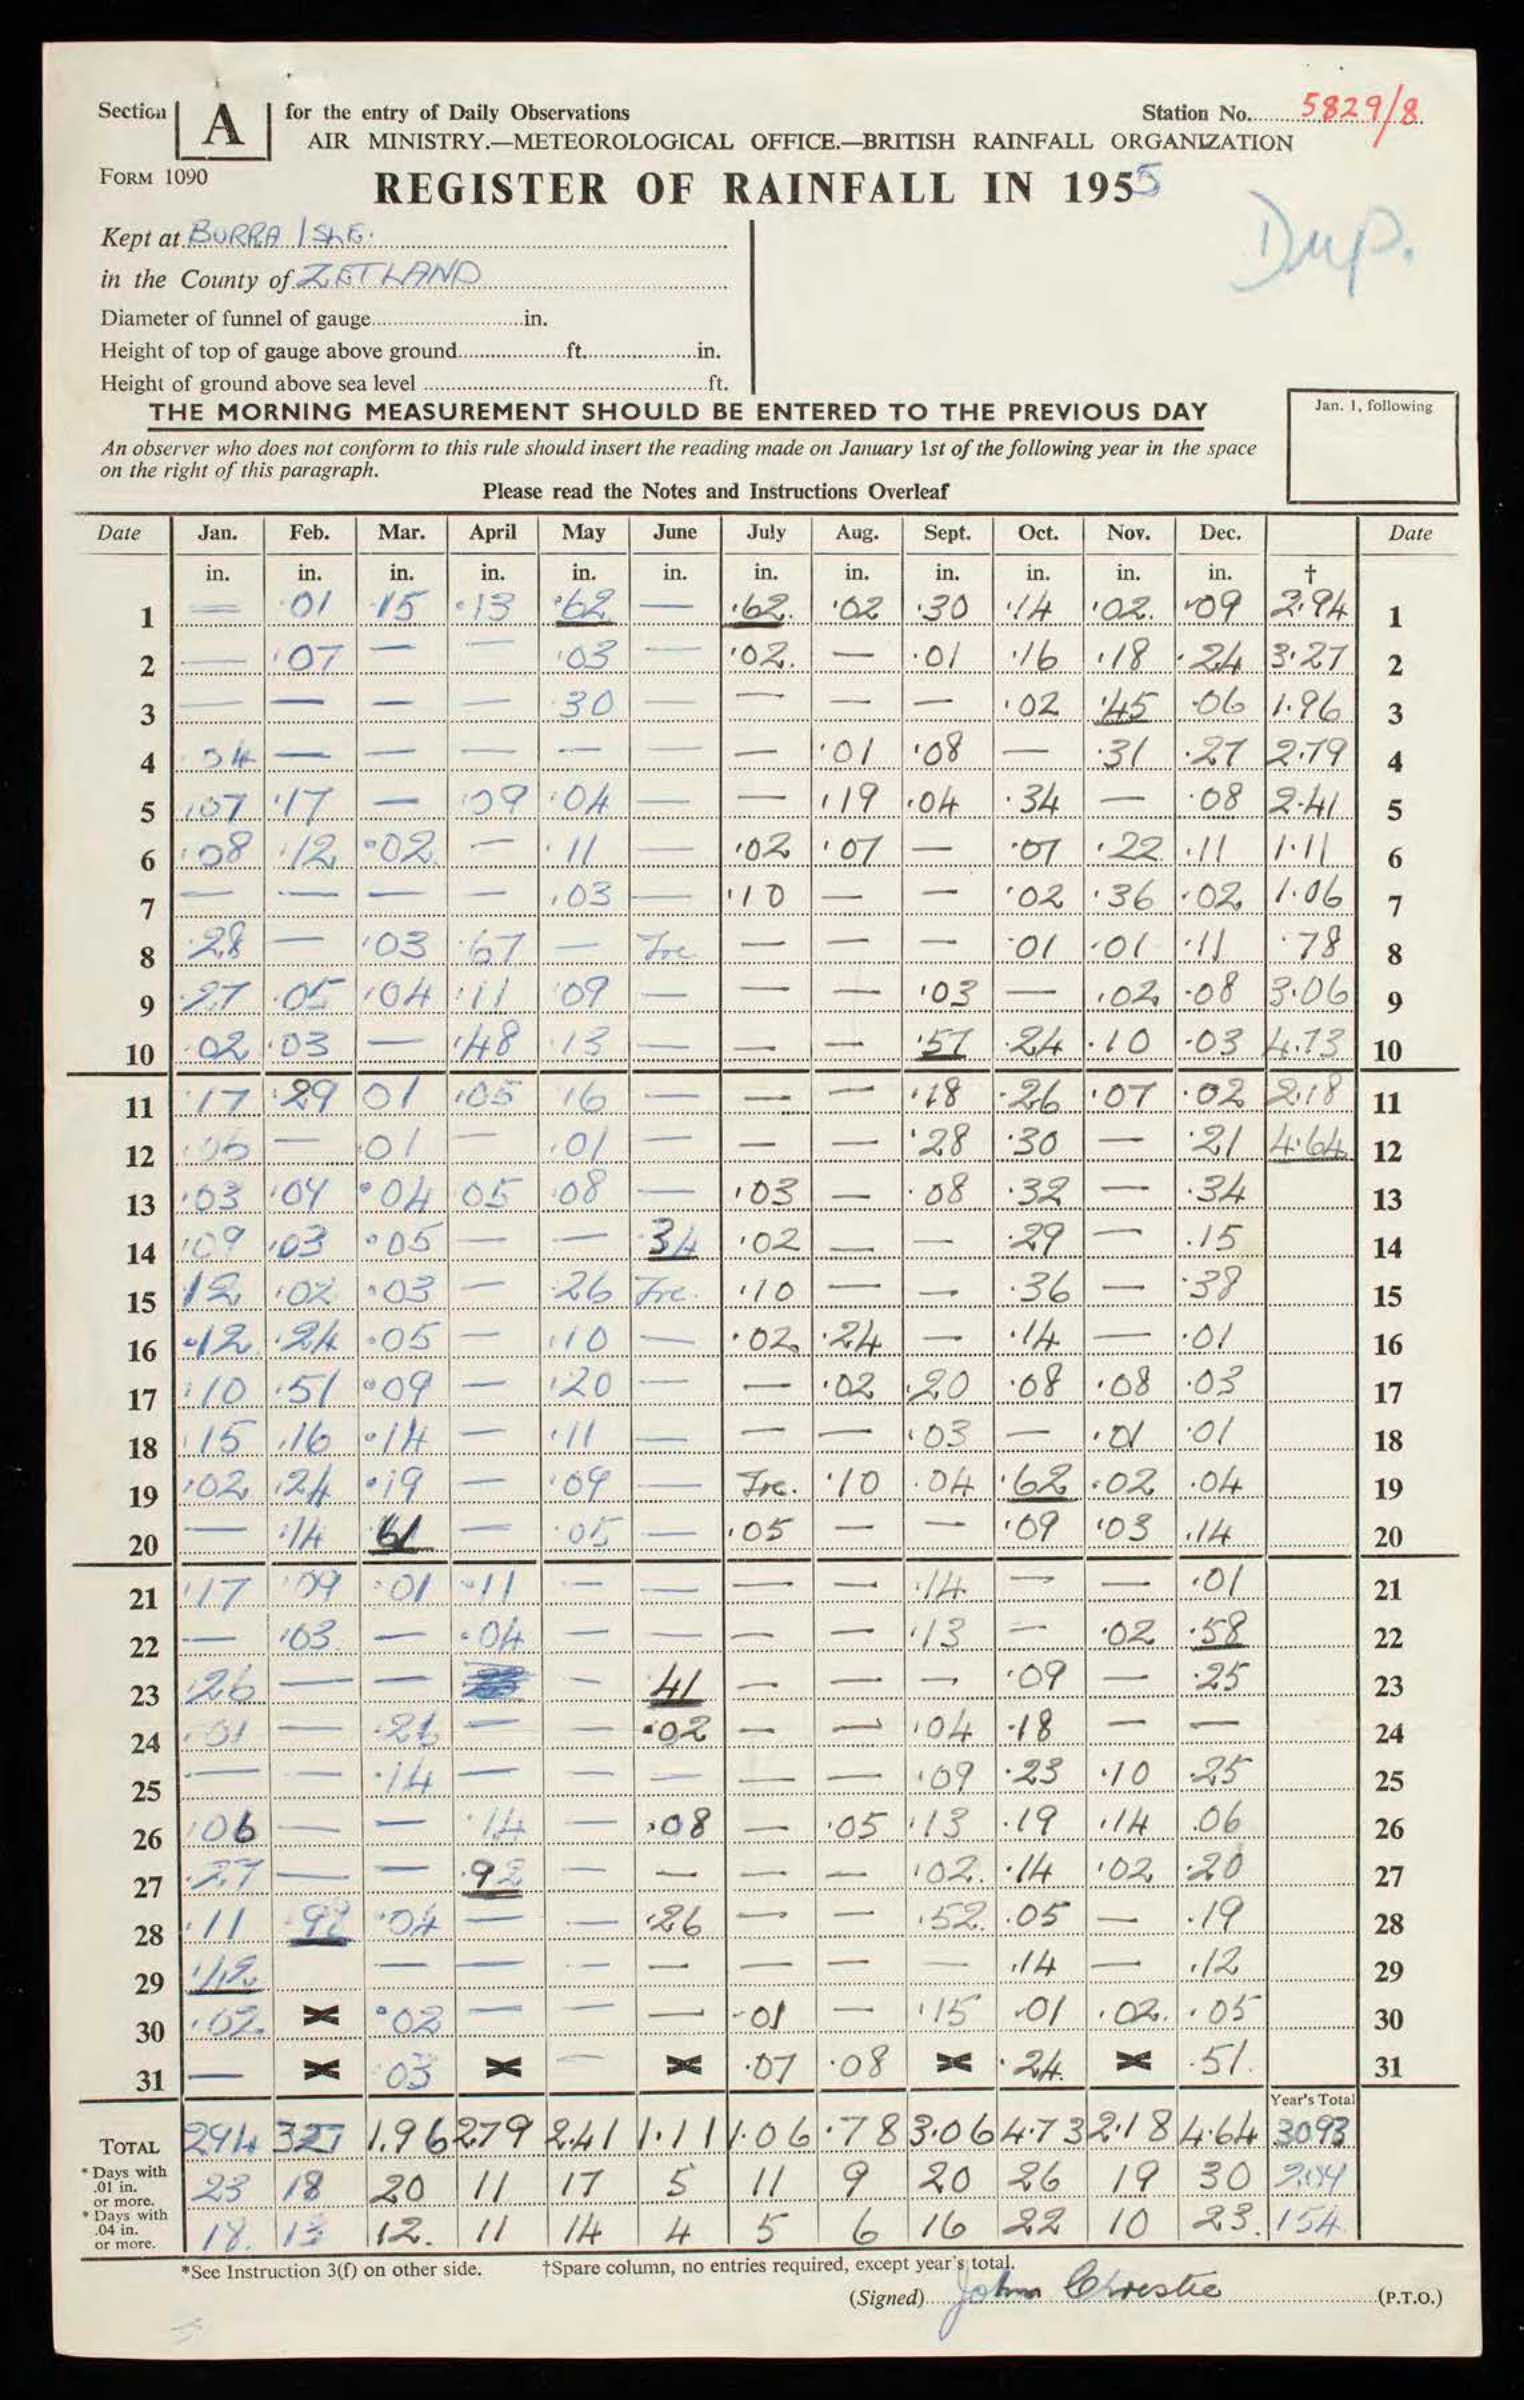 Section A for the entry of Daily Observations Station No. 5829/8
AIR MINISTRY.—METEOROLOGICAL OFFICE.—BRITISH RAINFALL ORGANIZATION
FORM 1090 REGISTER OF RAINFALL IN 1955
Dup.
Kept at BURRA ISLE.
in the County of ZETLAND
Diameter of funnel of gauge in.
Height of top of gauge above ground ft. in.
Height of ground above sea level ft.
THE MORNING MEASUREMENT SHOULD BE ENTERED TO THE PREVIOUS DAY
Jan. 1, following
An observer who does not conform to this rule should insert the reading made on January 1st of the following year in the space
on the right of this paragraph.
Please read the Notes and Instructions Overleaf
Date Jan. Feb. Mar. April May June July Aug. Sept. Oct. Nov. Dec. Date
in. in. in. in. in. in. in. in. in. in. in. in. †
1 — .01 .15 .13 .62 — .62 .02 .30 .14 .02 .09 2.94 1
2 — .07 — — .03 — .02 — .01 .16 .18 .24 3.27 2
3 — — — — .30 — — — — .02 .45 .06 1.96 3
4 .34 — — — — — — .01 .08 — .31 .27 2.79 4
5 .07 .17 — .09 .04 — — .19 .04 .34 — .08 2.41 5
6 .08 .12 .02 — .11 — .02 .07 — .07 .22 .11 1.11 6
7 — — — — .03 — .10 — — .02 .36 .02 1.06 7
8 .28 — .03 .67 — Trc — — — .01 .01 .11 .78 8
9 .27 .05 .04 .11 .09 — — — .03 — .02 .08 3.06 9
10 .02 .03 — .48 .13 — — — .57 .24 .10 .03 4.73 10
11 .17 .29 01 .05 .16 — — — .18 .26 .07 .02 2.18 11
12 .06 — .01 — .01 — — — .28 .30 — .21 4.64 12
13 .03 .04 .04 05 .08 — .03 — .08 .32 — .34 13
14 .09 .03 .05 — — .34 .02 — — .29 — .15 14
15 .12 .02 .03 — .26 Trc. .10 — — .36 — .38 15
16 .12 .24 .05 — .10 — .02 .24 — .14 — .01 16
17 .10 .51 .09 — .20 — — .02 .20 .08 .08 .03 17
18 .15 .16 .14 — .11 — — — .03 — .01 .01 18
19 .02 .24 .19 — .09 — Trc. .10 .04 .62 .02 .04 19
20 — .14 61 — .05 — .05 — — .09 .03 .14 20
21 .17 .09 .01 .11 — — — — .14 — — .01 21
22 — .03 — .04 — — — — .13 — .02 .58 22
23 .26 — — — .41 — — — .09 — .25 23
24 .01 — .21 — — .02 — — .04 .18 — — 24
25 — — .14 — — — — — .09 .23 .10 .25 25
26 .06 — — .14 — .08 — .05 .13 .19 .14 .06 26
27 .27 — — .92 — — — — .02 .14 .02 .20 27
28 .11 .92 .04 — — .26 — — .52 .05 — .19 28
29 — — — — — — — .14 — .12 29
30 .02 × .02 — — — .01 — .15 .01 .02 .05 30
31 — × .03 × — × .07 .08 × .24 × .51 31
Year's Total
TOTAL 294 327 1.96 279 2.41 1.11 1.06 .78 3.06 4.73 2.18 4.64 3093
* Days with .01 in. or more. 23 18 20 11 17 5 11 9 20 26 19 30 209
* Days with .04 in. or more. 18 13 12 11 14 4 5 6 16 22 10 23 154
*See Instruction 3(f) on other side. †Spare column, no entries required, except year's total.
(Signed) John Christie (P.T.O.)